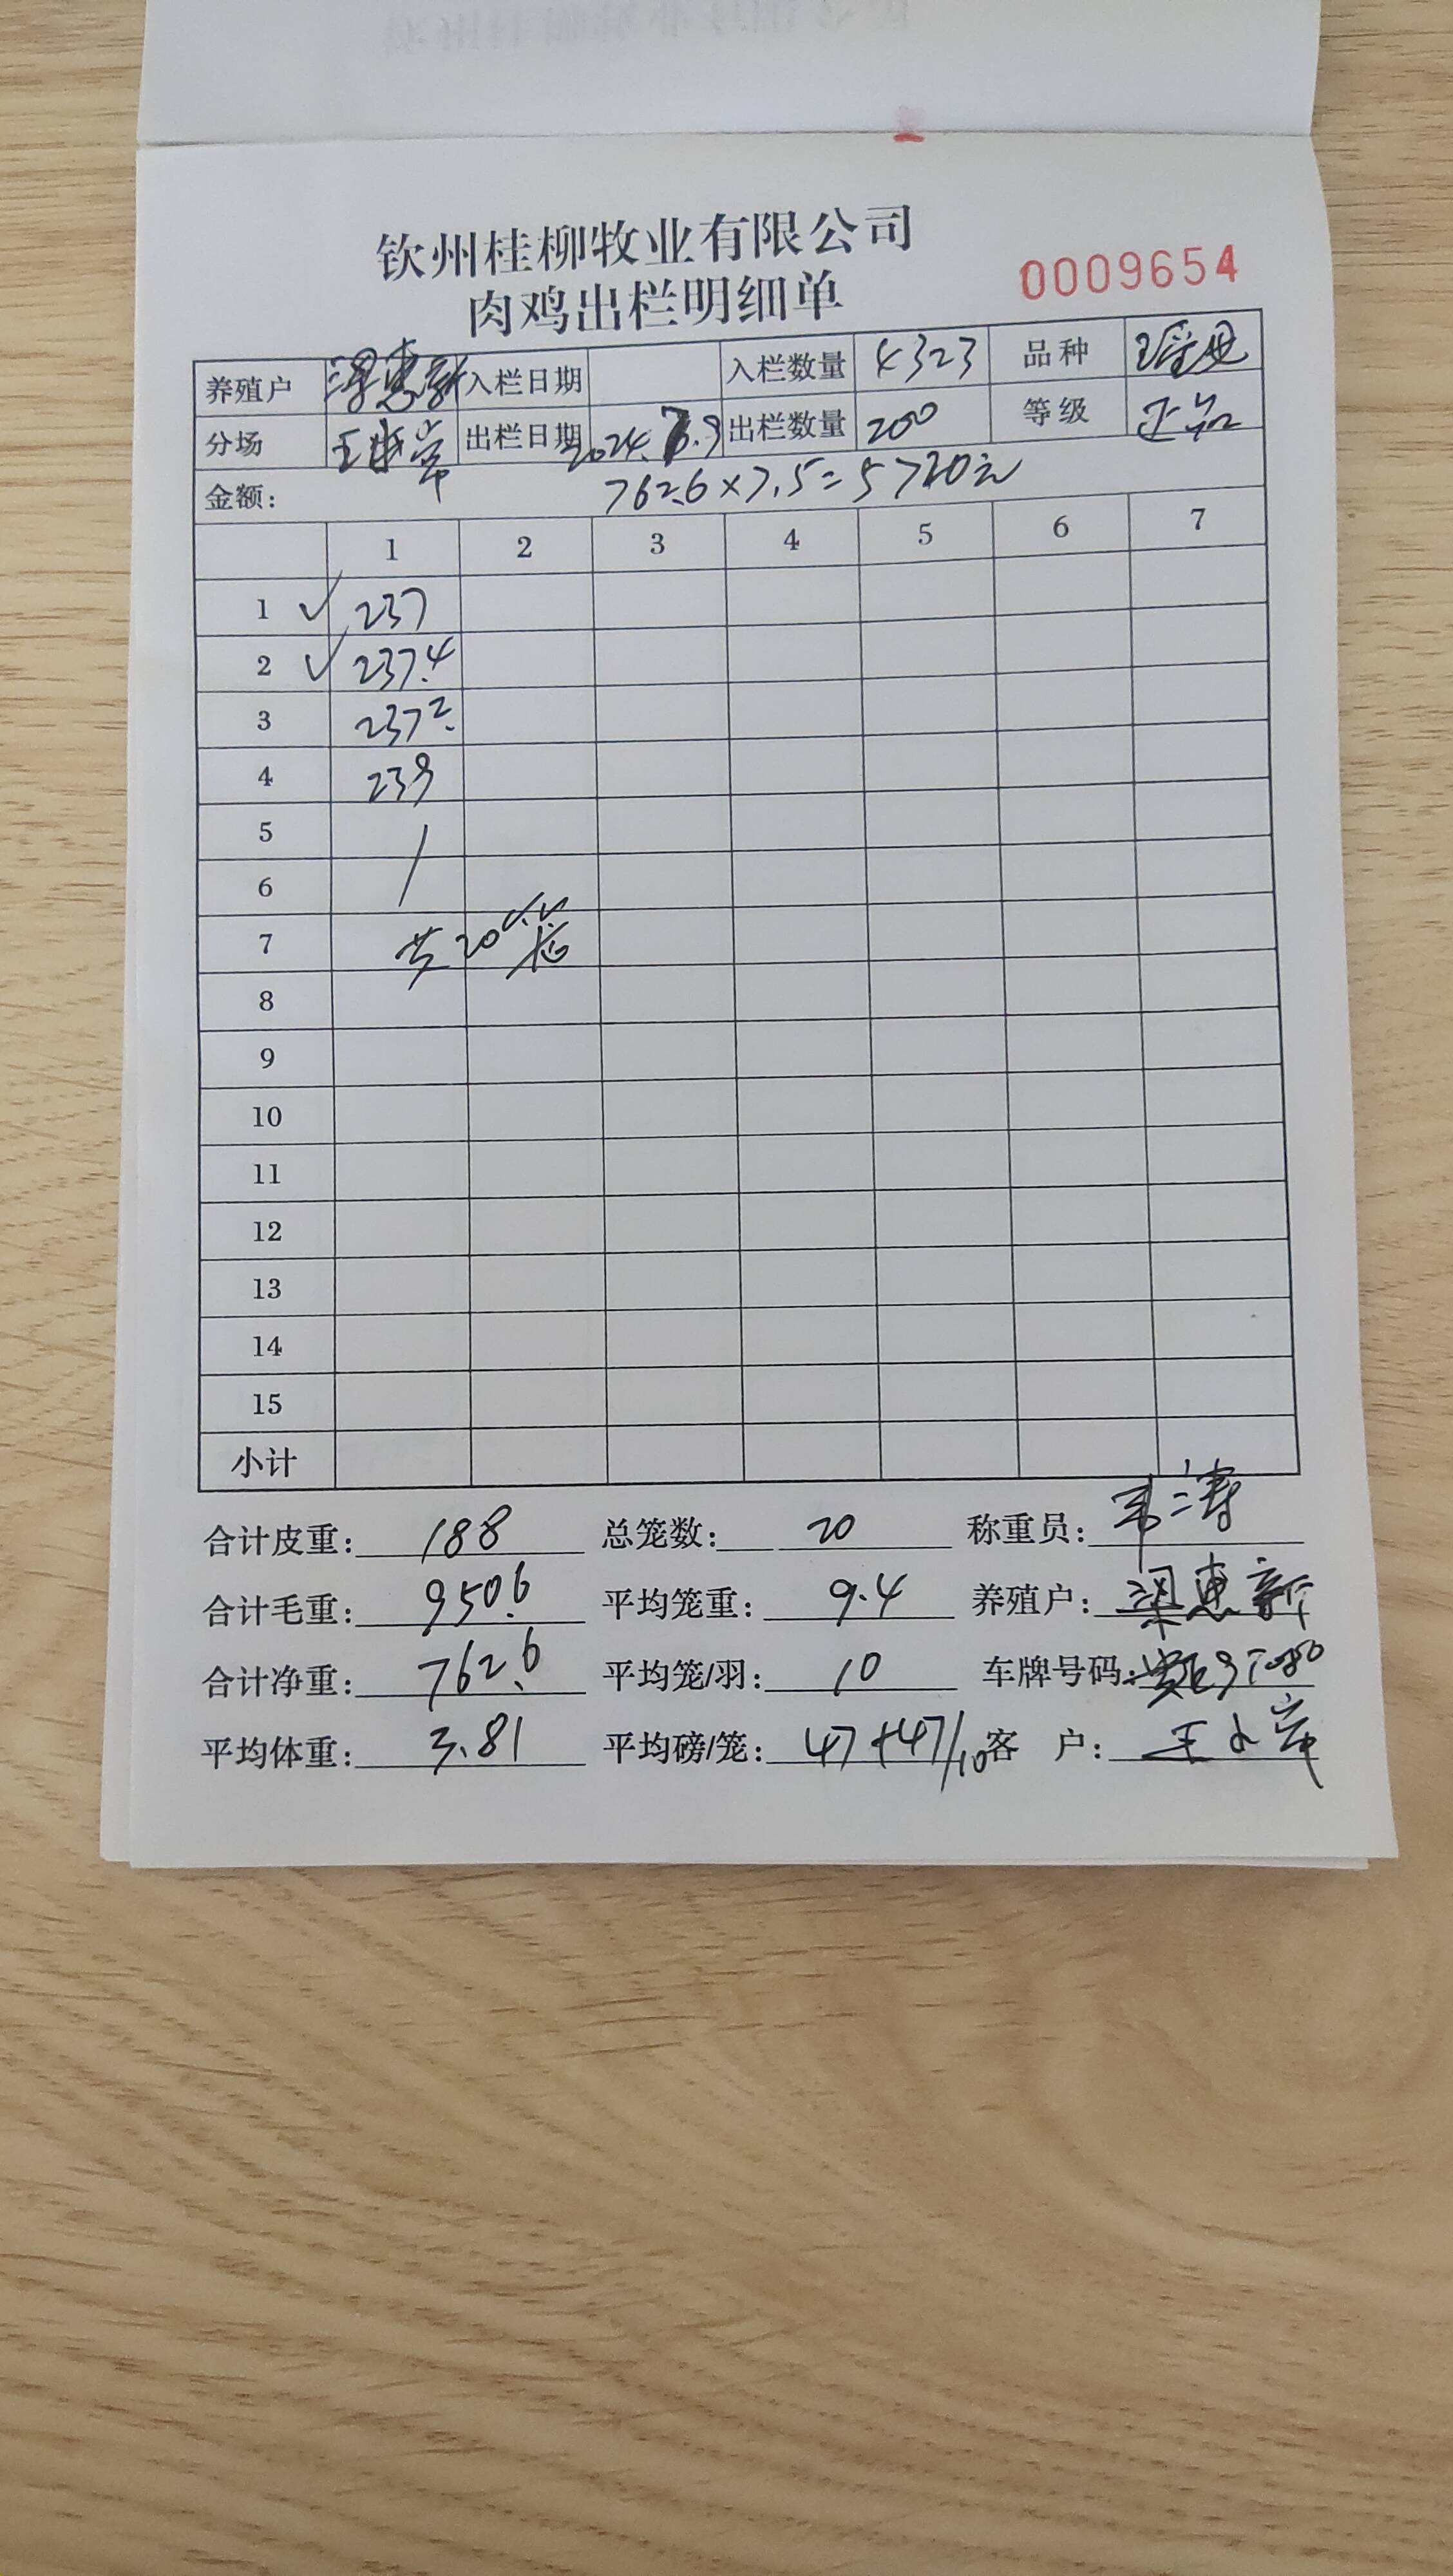 钦州桂柳牧业有限公司
肉鸡出栏明细单
0009654
养殖户 梁惠新 入栏日期 入栏数量 4323 品种
分场 出栏日期 2024.7.9 出栏数量 200 等级 正品
金额: 762.6×7.5=5720元
1 2 3 4 5 6 7
1 ✓ 237
2 ✓ 237.4
3 237.2
4 239
5
6
7 共20笼
8
9
10
11
12
13
14
15
小计
合计皮重: 188 总笼数: 20 称重员: 韦涛
合计毛重: 950.6 平均笼重: 9.4 养殖户: 梁惠新
合计净重: 762.6 平均笼/羽: 10 车牌号码:
平均体重: 3.81 平均磅/笼: 47+47/10 客 户: